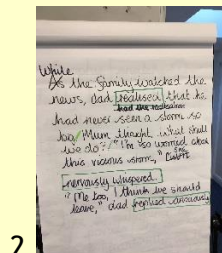 While
As the family watched the
news, dad realised that he
had never seen a storm so
big. Mum thought, what shall
we do? "I'm so worried about
this vicious storm,"
nervously whispered
"Me too, I think we should
leave," dad replied anxiously
2